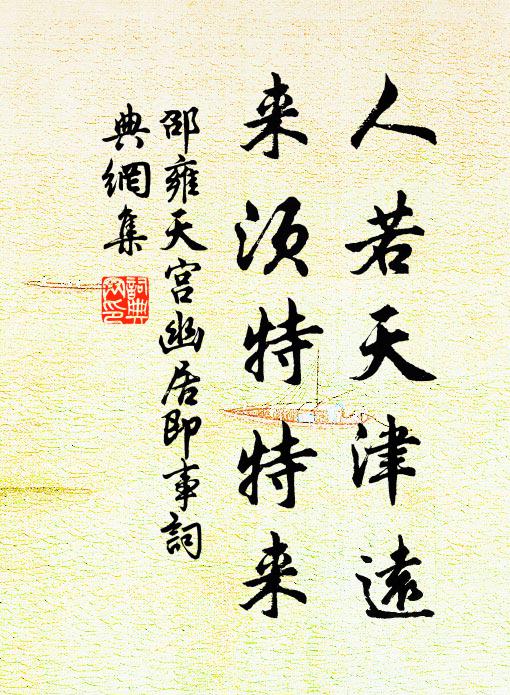 人若天津遠
来須特特来
邵雍天宮幽居即事詞
典網集
詞典